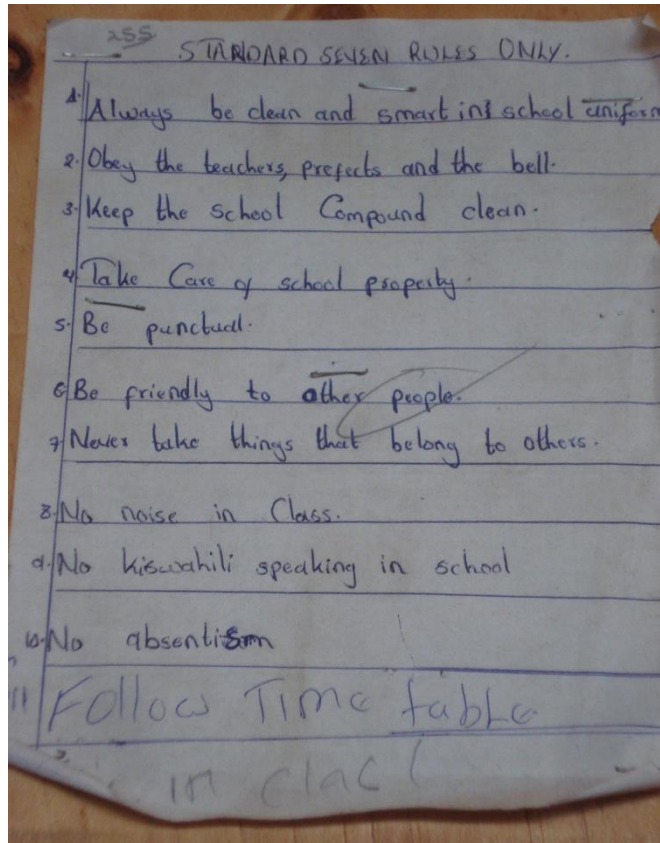 255
STANDARD SEVEN RULES ONLY.
1. Always be clean and smart in school uniform
2. Obey the teachers, prefects and the bell.
3. Keep the school Compound clean.
4. Take Care of school property.
5. Be punctual.
6. Be friendly to other people.
7. Never take things that belong to others.
8. No noise in Class.
9. No kiswahili speaking in school
10. No absentism
11 Follow Time table
in clac